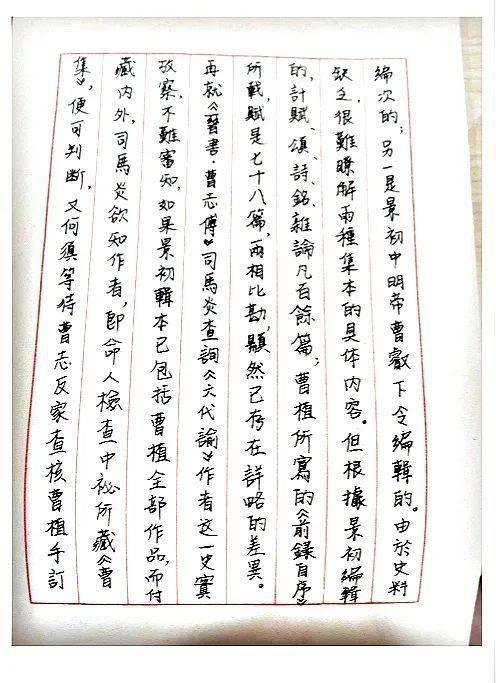 編次的；另一是景初中明帝曹叡下令編輯的。由於史料
缺乏，很難瞭解兩種集本的具体内容。但根據景初編輯
的，計賦、頌、詩、銘、雜論凡百餘篇；曹植所寫的《前錄自序》
所載，賦是七十八篇，兩相比勘，顯然已存在詳略的差異。
再就《晉書·曹志傳》司馬炎查詢《六代論》作者这一史實
攷察，不難審知，如果景初輯本已包括曹植全部作品，而付
藏内外，司馬炎欲知作者，即命人檢查中祕所藏《曹
集》，便可判斷，又何須等待曹志反家查核曹植手訂